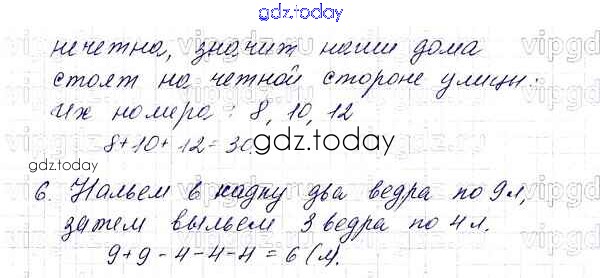 gdz.today
нечетна, значит наши дома
стоят на четной стороне улицы.
Их номера : 8, 10, 12
8+10+12=30
gdz.today
gdz.today
6. Нальем в кадку два ведра по 9 л,
затем выльем 3 ведра по 4 л.
9+9-4-4-4=6 (л).